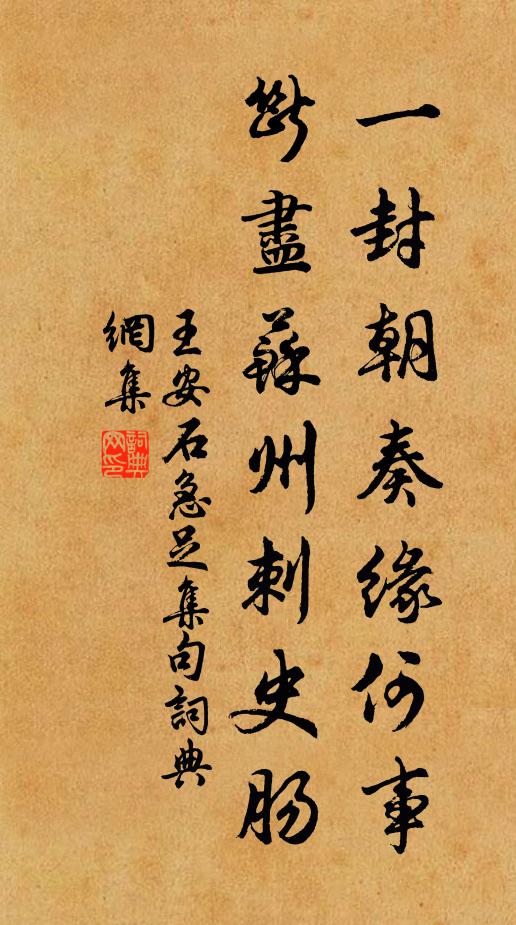 一封朝奏緣何事
斷盡蘇州刺史腸
王安石急足集句詞典
網集
詞典
网印